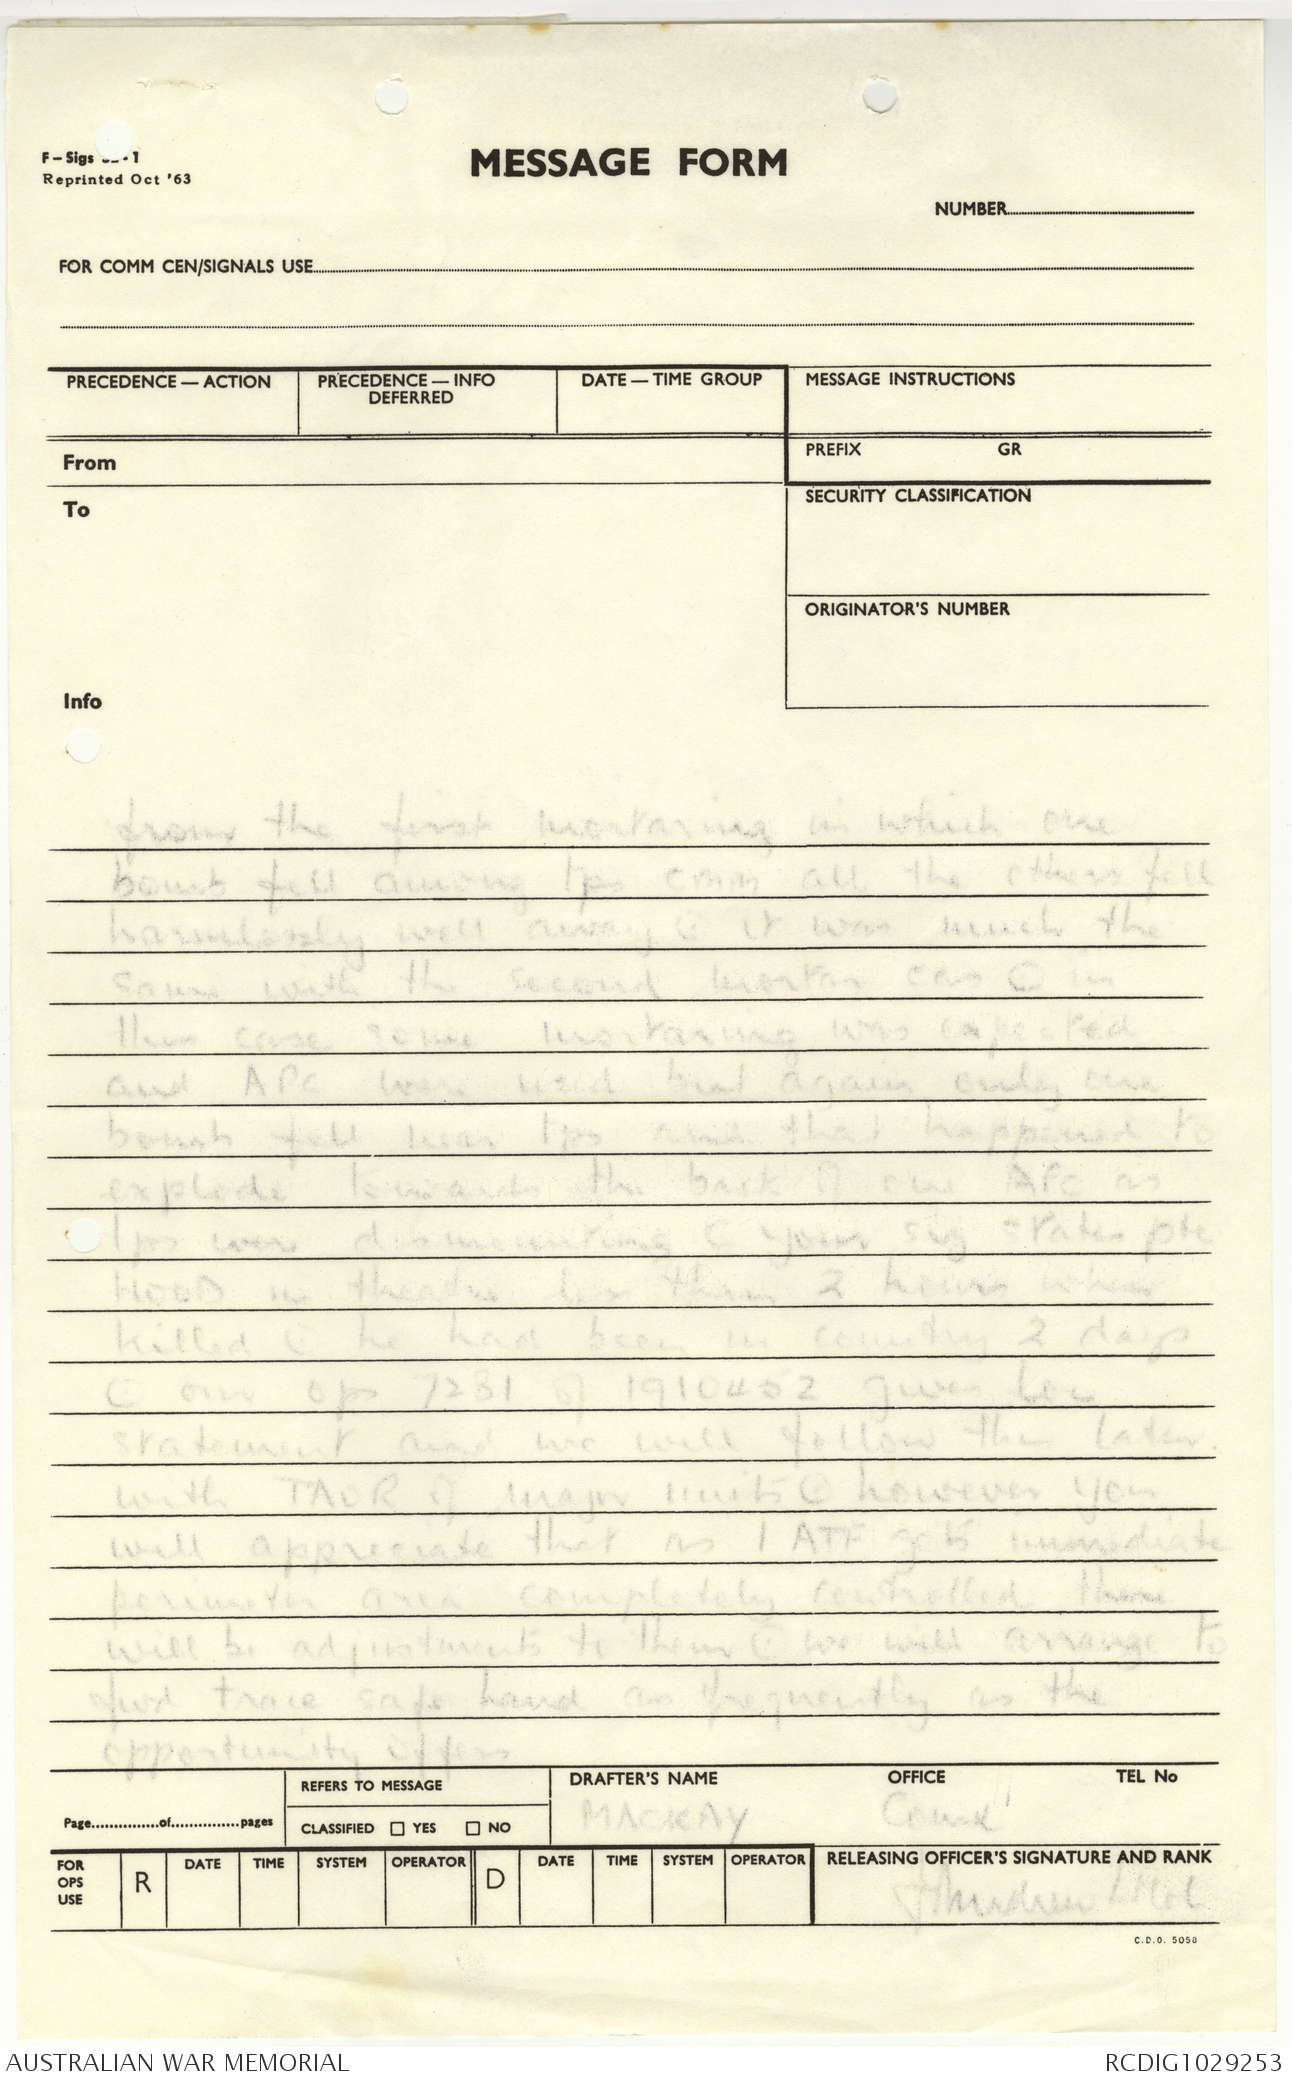 F-Sigs 1
Reprinted Oct '63
MESSAGE FORM
NUMBER
FOR COMM CEN/SIGNALS USE
PRECEDENCE — ACTION
PRECEDENCE — INFO
DEFERRED
DATE — TIME GROUP
MESSAGE INSTRUCTIONS
From
PREFIX GR
To
SECURITY CLASSIFICATION
ORIGINATOR'S NUMBER
Info
from the first mortaring in which one
bomb fell among tps cmm all the others fell
harmlessly well away (C) it was much the
same with the second mortar cas (C) in
this case some mortaring was expected
and APC were used but again only one
bomb fell near tps and that happened to
explode towards the back of one APC as
tps were dismounting (C) your sig states pte
HOOD in theatre less than 2 hours when
killed (C) he had been in country 2 days
(C) our ops 7281 of 191045Z gives
statement and we will follow this later
with TAOR of major units (C) however you
will appreciate that as 1 ATF gets immediate
perimeter area completely controlled there
will be adjustments to them (C) we will arrange to
fwd trace safe hand as frequently as the
opportunity offers
Page of pages
REFERS TO MESSAGE
CLASSIFIED YES NO
DRAFTER'S NAME
MACKAY
OFFICE
Comd
TEL No
FOR
OPS
USE
R
DATE TIME SYSTEM OPERATOR
D
DATE TIME SYSTEM OPERATOR
RELEASING OFFICER'S SIGNATURE AND RANK
C.D.O. 5058
AUSTRALIAN WAR MEMORIAL
RCDIG1029253